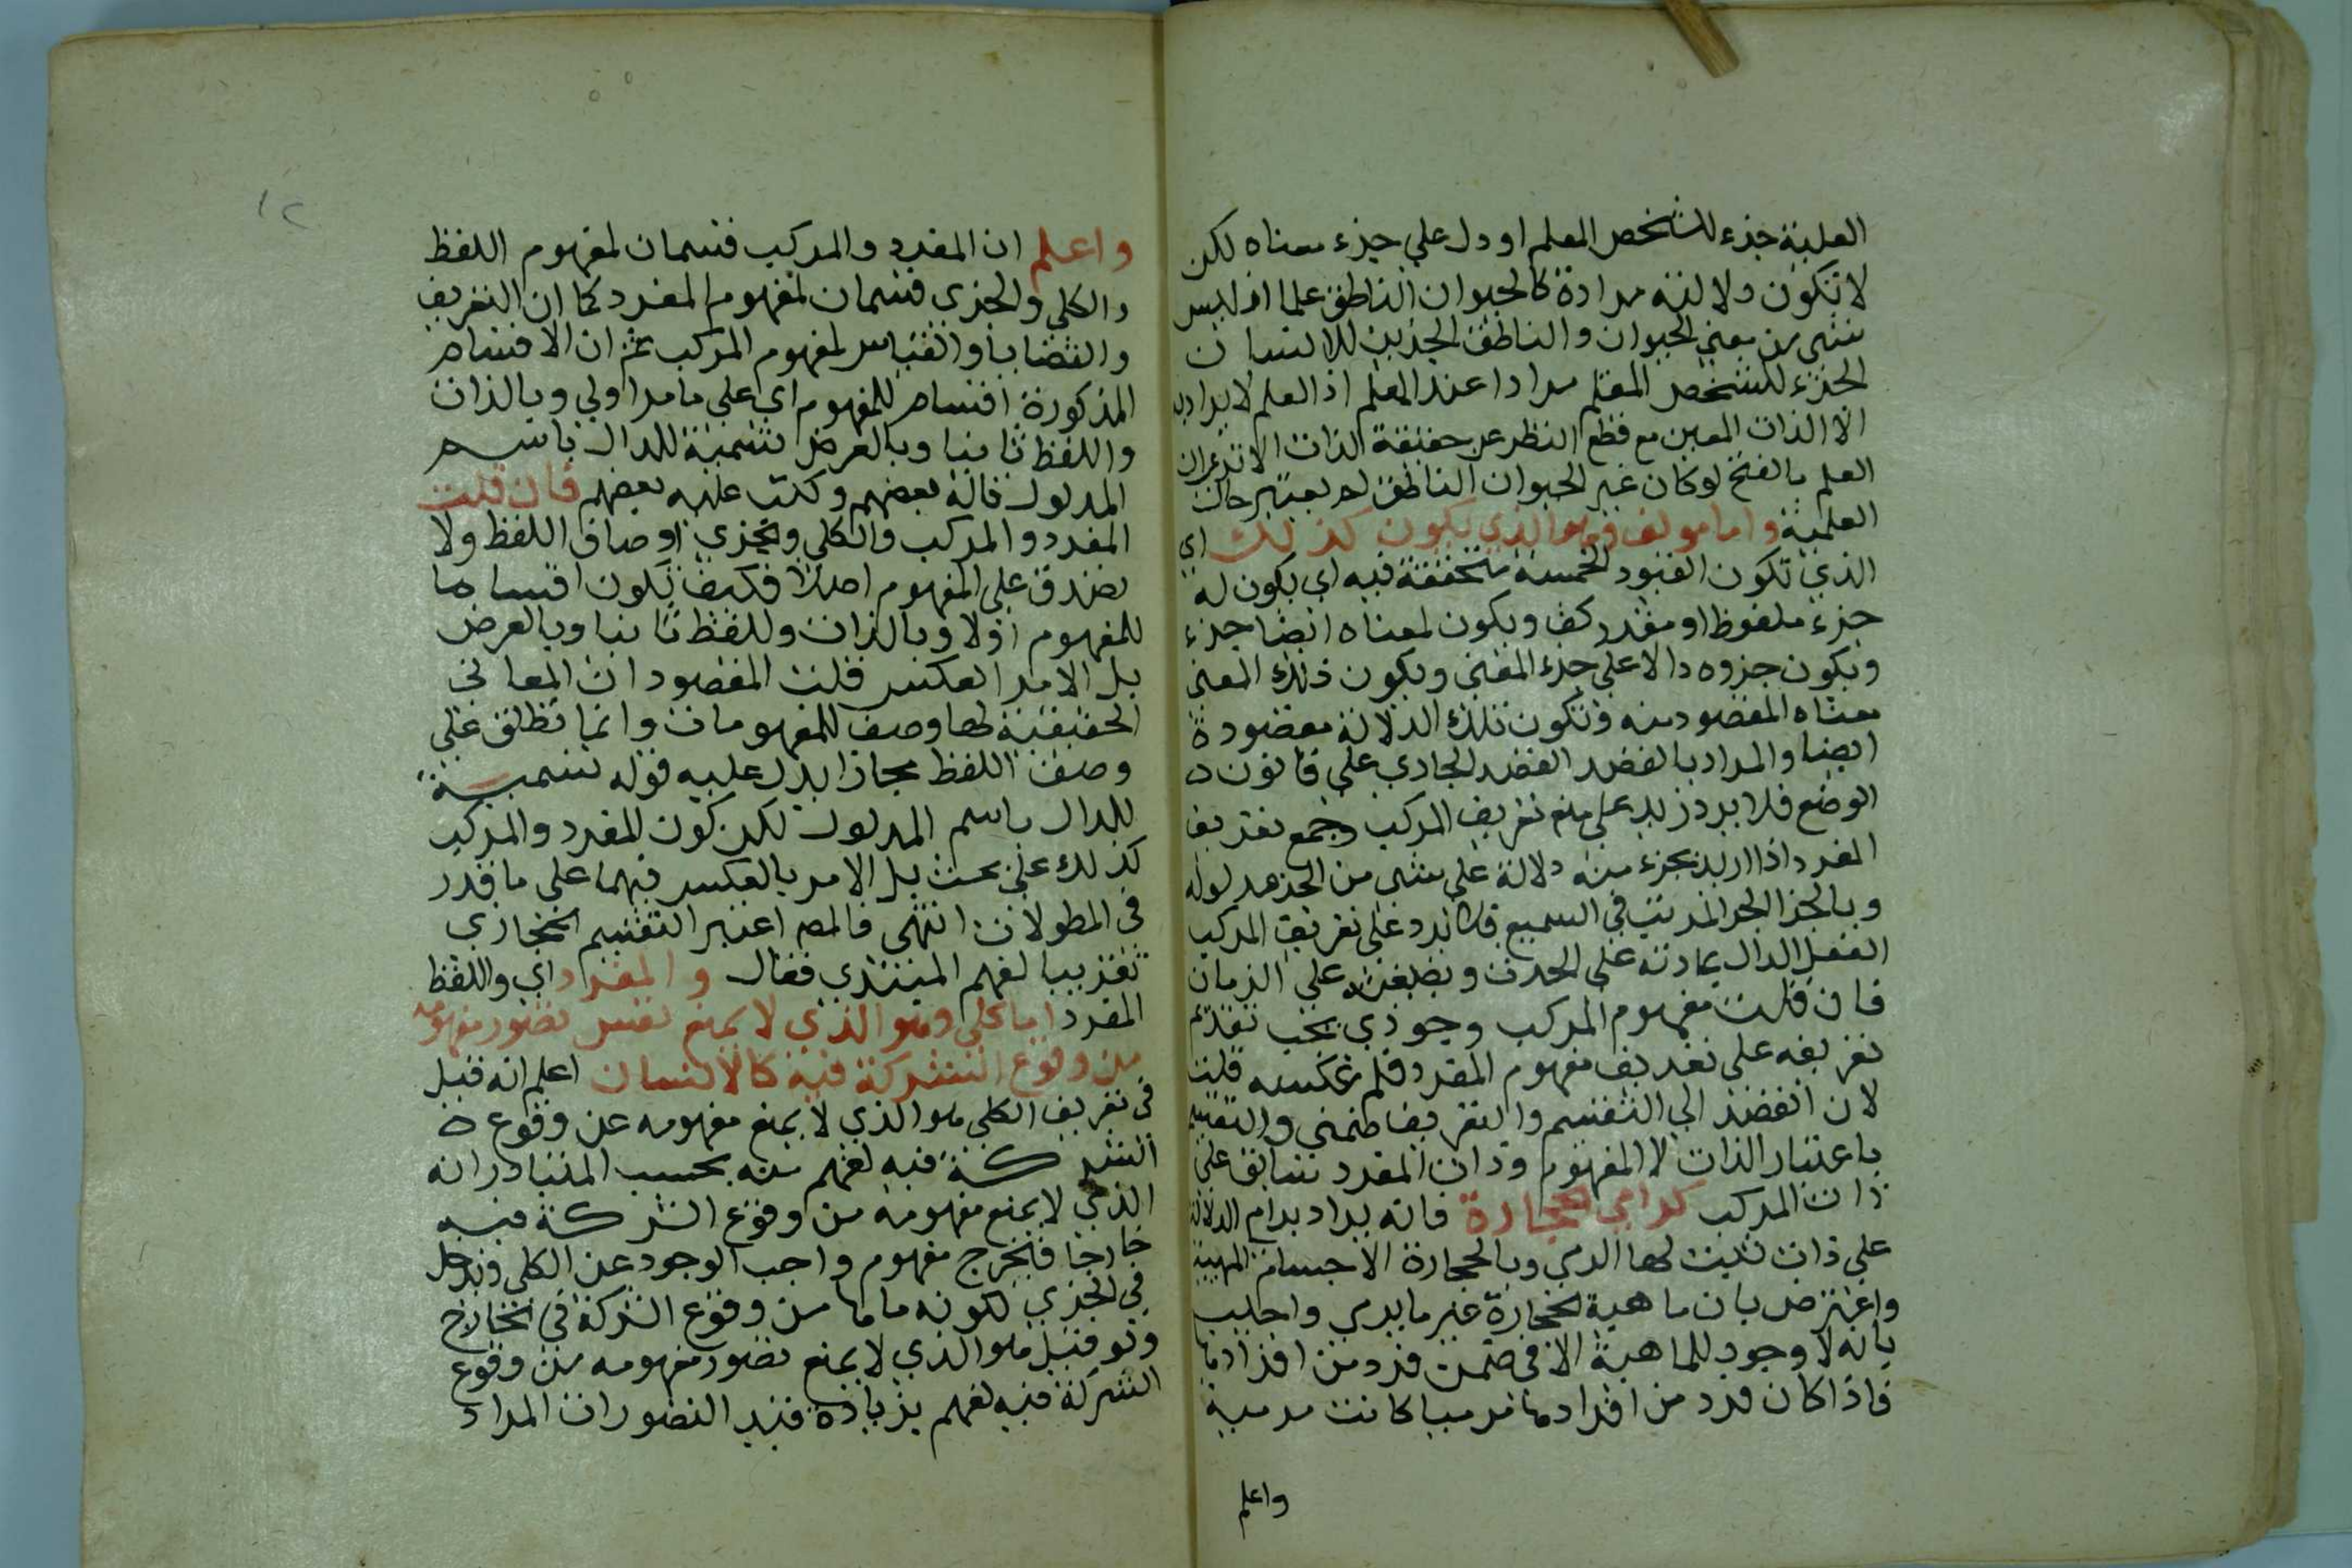 العلمية جزء للشخص المعلم او دل علي جزء معناه لكن
لا تكون دلالته مرادة كالحيوان الناطق علما اذ ليس
شئ من معني الحيوان والناطق الجزئين للانسان
الجزء للشخص المعلم مرادا عند المعلم اذ العلم لا يراد به
الا الذات المعين مع قطع النظر عن حقيقة الذات الا تري ان
العلم بالفتح لو كان غير الحيوان الناطق لم يعتبر حالت
العلمية واما مولف وهو الذي يكون كذلك اي
الذي تكون القيود الخمسة متحققة فيه اي يكون له
جزء ملفوظ او مقدر كقف ويكون لمعناه ايضا جزء
ويكون جزوه دالا علي جزء المعني ويكون ذلك المعني
معناه المقصود منه وتكون تلك الدلالة مقصودة
ايضا والمراد بالقصد القصد الجاري علي قانون
الوضع فلا يرد زيد علي منع تعريف المركب وجمع تعريف
المفرد اذا اريد بجزء منه دلالة علي شئ من اجزء مدلوله
وبالجزء الجزء المرتب في السمع فلا يرد علي تعريف المركب
الفعل الدال بمادته علي الحدث وبصيغته علي الزمان
فان قلت مفهوم المركب وجودي يجب تقديم
تعريفه علي تعريف مفهوم المفرد فلم عكسه قلت
لان القصد الي التقسيم والتعريف ضمني والتقسيم
باعتبار الذات لا المفهوم وذات المفرد سابق علي
ذات المركب كرامي الحجارة فانه يراد برام الدلالة
علي ذات ثبت لها الرمي وبالحجارة الاجسام المعينة
واعترض بان ماهية الحجارة غير ما يرمي واجيب
بانه لا وجود للماهية الا في ضمن فرد من افرادها
فاذا كان فرد من افرادها مرميا كانت مرمية
واعلم
واعلم ان المفرد والمركب قسمان لمفهوم اللفظ
والكلي والجزي قسمان لمفهوم المفرد كما ان التعريف
والقضايا والقياس لمفهوم المركب ثم ان الاقسام
المذكورة اقسام للمفهوم اي علي ما مر اولي وبالذات
واللفظ ثانيا وبالعرض تسمية للدال باسم
المدلول قاله بعضهم وكتب عليه بعضهم فان قلت
المفرد والمركب والكلي والجزي اوصاف اللفظ ولا
تصدق علي المفهوم اصلا فكيف تكون اقساما
للمفهوم اولا وبالذات وللفظ ثانيا وبالعرض
بل الامر العكس قلت المقصود ان المعاني
الحقيقية لها وصف للمفهومات وانما تطلق علي
وصف اللفظ مجازا يدل عليه قوله تسمية
للدال باسم المدلول لكن كون المفرد والمركب
كذلك علي بحث بل الامر بالعكس فيهما علي ما قدر
في المطولات انتهي فالمصـ اعتبر التقسيم المجازي
تقريبا لفهم المبتدي فقال والمفرد اي واللفظ
المفرد اما كلي وهو الذي لا يمنع نفس تصور مفهومه
من وقوع الشركة فيه كالانسان اعلم انه قيل
في تعريف الكلي هو الذي لا يمنع مفهومه عن وقوع
الشركة فيه لفهم منه بحسب المتبادر انه
الذي لا يمنع مفهومه من وقوع الشركة فيه
خارجا فيخرج مفهوم واجب الوجود عن الكلي ويدخل
في الجزي لكونه مانعا من وقوع الشركة في الخارج
ولو قيل هو الذي لا يمنع تصور مفهومه من وقوع
الشركة فيه لفهم بزيادة قيد التصور ان المراد